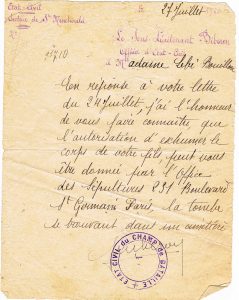 Etat-Civil
Secteur de Ste Menehould
27 Juillet
Le Sous-Lieutenant
Officier d'Etat-Civil
à Madame
En réponse à votre lettre
du 24 Juillet, j'ai l'honneur
de vous faire connaître, que
l'autorisation d'exhumer le
corps de votre fils peut vous
être donnée par l'Office
des Sépultures 231 Boulevard
St Germain Paris, la tombe
se trouvant dans un cimetière
ETAT CIVIL DU CHAMP DE BATAILLE